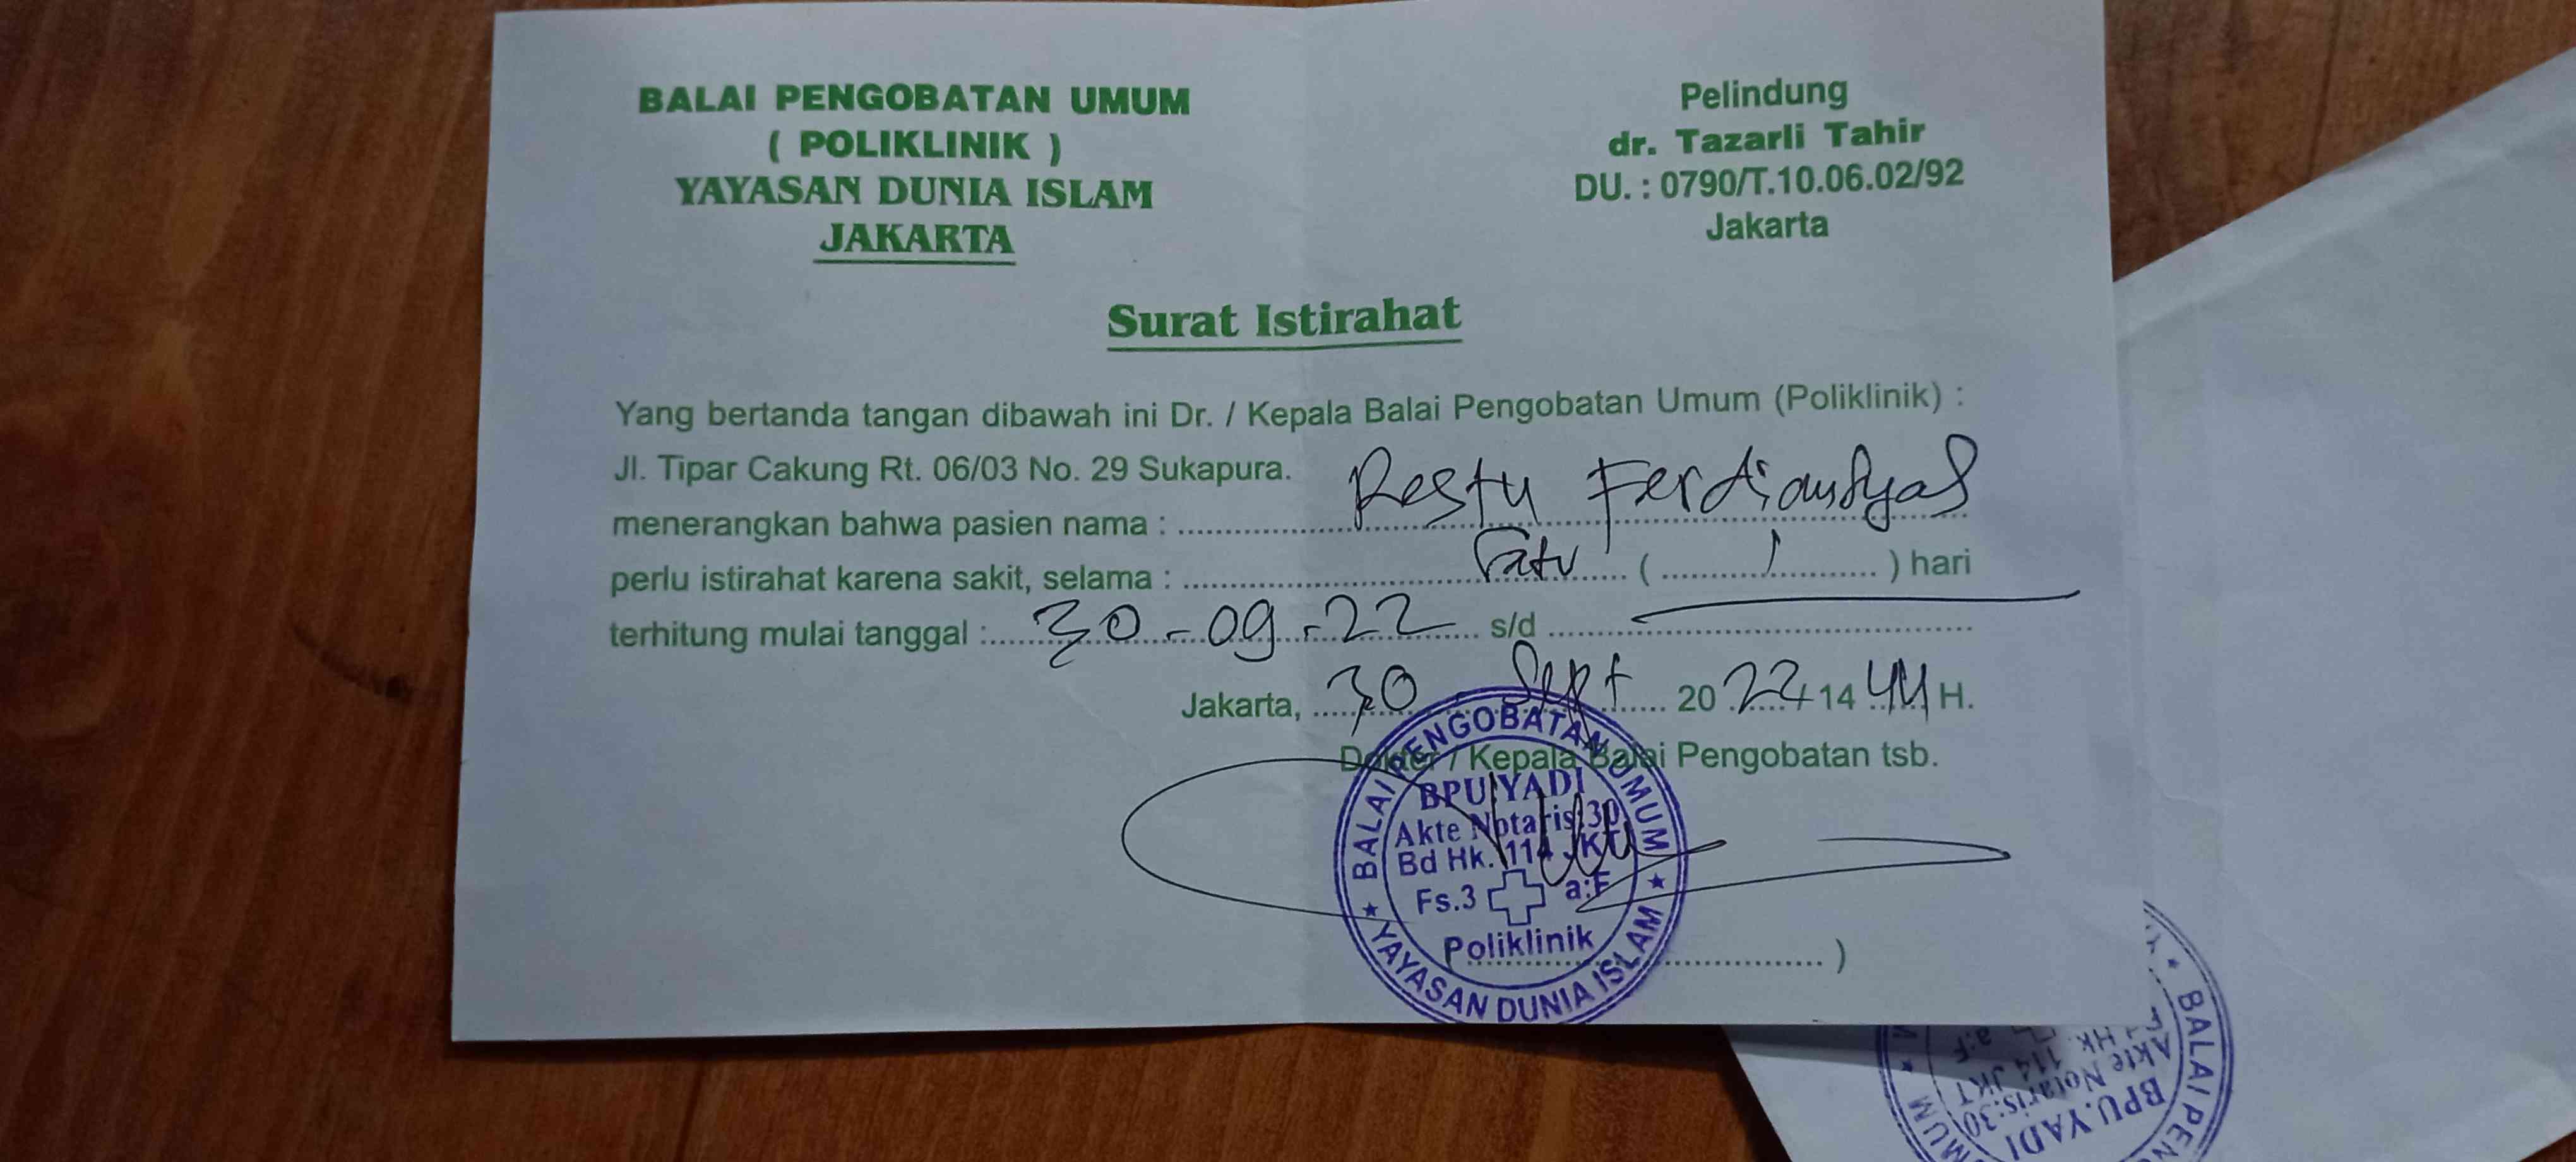 BALAI PENGOBATAN UMUM
( POLIKLINIK )
YAYASAN DUNIA ISLAM
JAKARTA
Pelindung
dr. Tazarli Tahir
DU. : 0790/T.10.06.02/92
Jakarta
Surat Istirahat
Yang bertanda tangan dibawah ini Dr. / Kepala Balai Pengobatan Umum (Poliklinik) :
Jl. Tipar Cakung Rt. 06/03 No. 29 Sukapura.
menerangkan bahwa pasien nama : Restu Ferdiansyah
perlu istirahat karena sakit, selama : Satu ( 1 ) hari
terhitung mulai tanggal : 30-09-22 s/d
Jakarta, 30 Sept 2022 / 1444 H.
Dokter / Kepala Balai Pengobatan tsb.
BALAI PENGOBATAN UMUM
BPU.YADI
Akte Notaris:30
Bd Hk. 114 JKT
Fs.3 a:F
Poliklinik
YAYASAN DUNIA ISLAM
)
BALAI PEN
BPU.YADI
Akte Notaris:30
Hk. 114 JKT
a:F
UMUM